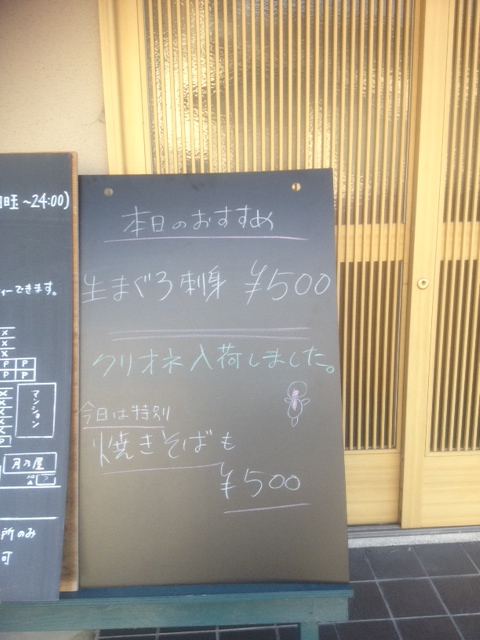 本日のおすすめ
生まぐろ刺身 ¥500
クリオネ入荷しました。
今日は特別
焼きそばも
¥500
~24:00)
ーできます。
X
X
X
P P
P P
X
X
P
マンション
月乃屋
所のみ
可